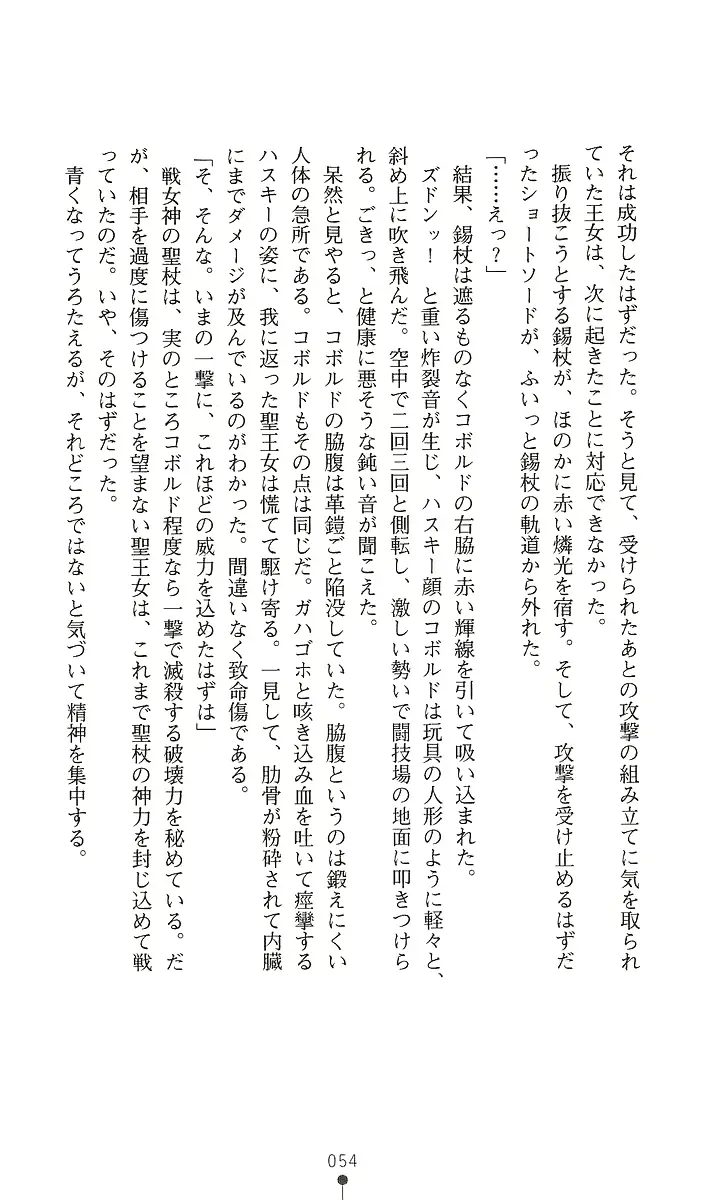 それは成功したはずだった。そうと見て、受けられたあとの攻撃の組み立てに気を取られ
ていた王女は、次に起きたことに対応できなかった。
　振り抜こうとする錫杖が、ほのかに赤い燐光を宿す。そして、攻撃を受け止めるはずだ
ったショートソードが、ふいっと錫杖の軌道から外れた。
「……えっ？」
　結果、錫杖は遮るものなくコボルドの右脇に赤い輝線を引いて吸い込まれた。
　ズドンッ！　と重い炸裂音が生じ、ハスキー顔のコボルドは玩具の人形のように軽々と、
斜め上に吹き飛んだ。空中で二回三回と側転し、激しい勢いで闘技場の地面に叩きつけら
れる。ごきっ、と健康に悪そうな鈍い音が聞こえた。
　呆然と見やると、コボルドの脇腹は革鎧ごと陥没していた。脇腹というのは鍛えにくい
人体の急所である。コボルドもその点は同じだ。ガハゴホと咳き込み血を吐いて痙攣する
ハスキーの姿に、我に返った聖王女は慌てて駆け寄る。一見して、肋骨が粉砕されて内臓
にまでダメージが及んでいるのがわかった。間違いなく致命傷である。
「そ、そんな。いまの一撃に、これほどの威力を込めたはずは」
　戦女神の聖杖は、実のところコボルド程度なら一撃で滅殺する破壊力を秘めている。だ
が、相手を過度に傷つけることを望まない聖王女は、これまで聖杖の神力を封じ込めて戦
っていたのだ。いや、そのはずだった。
　青くなってうろたえるが、それどころではないと気づいて精神を集中する。
054